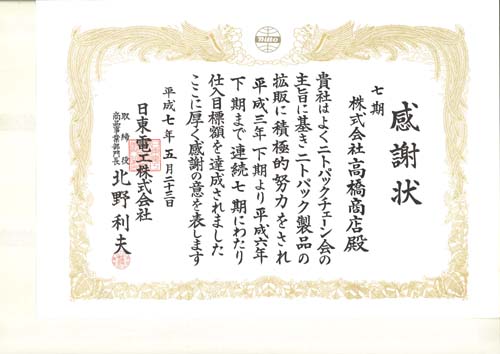 Nitto
感謝状
七期
株式会社高橋商店殿
貴社はよくニトパックチェーン会の
主旨に基きニトパック製品の
拡販に積極的努力をされ
平成三年下期より平成六年
下期まで連続七期にわたり
仕入目標額を達成されました
ここに厚く感謝の意を表します
平成七年五月二十三日
日東電工株式会社
取締役
商品事業部門長
北野利夫